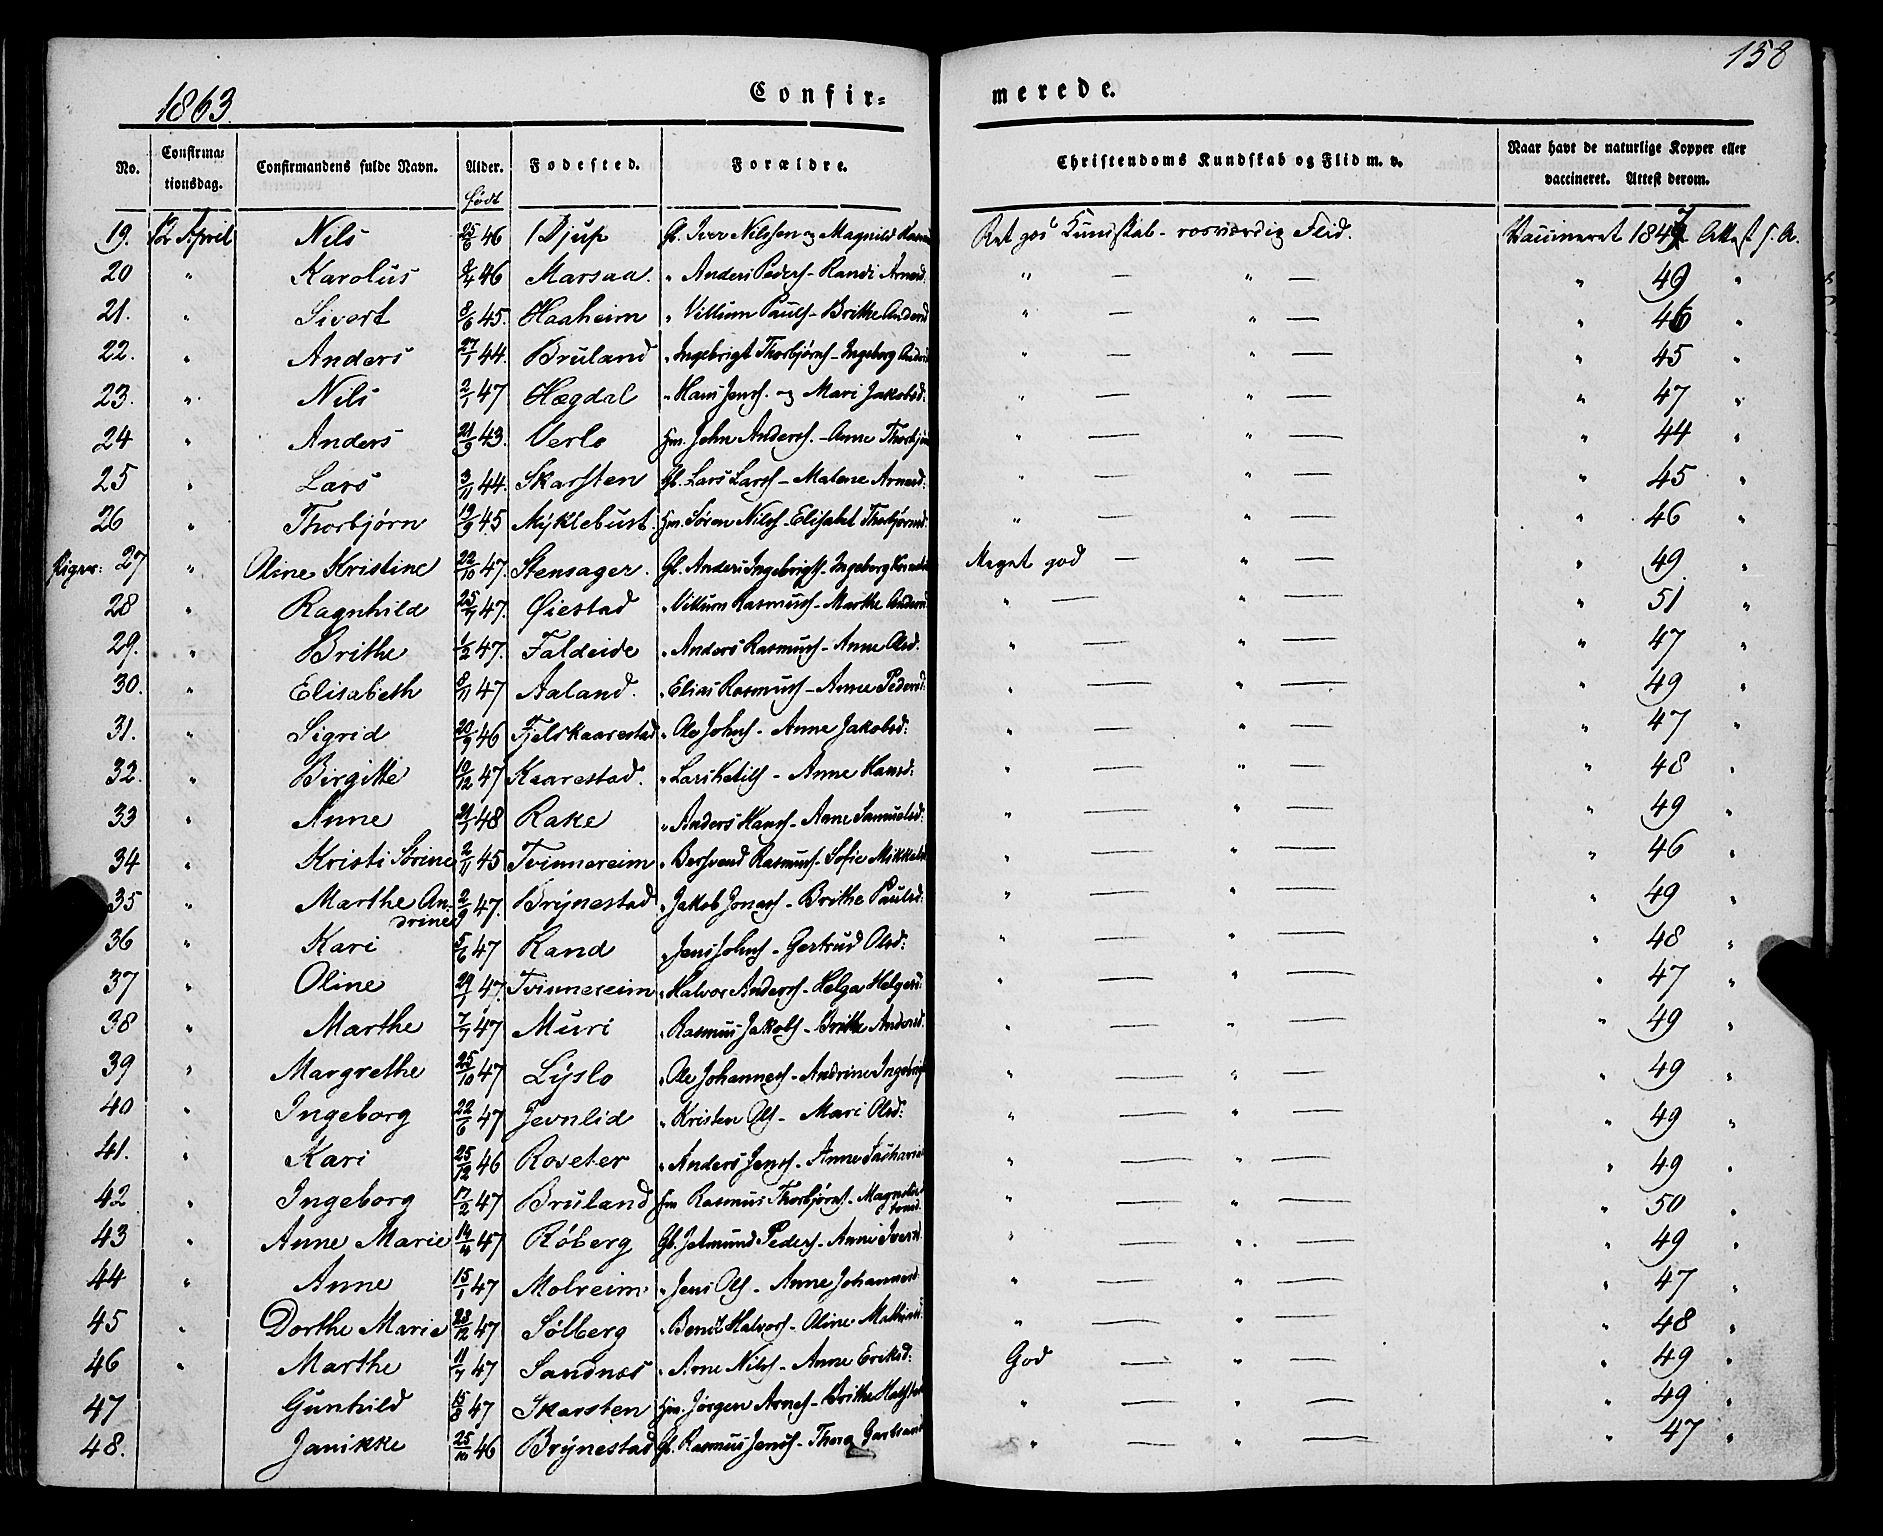 158
1863.
Confir- merede.
No. Confirmationsdag. Confirmandens fulde Navn. Alder. Fodested. Forældre. Christendoms Kundskab og Flid m. v. Naar havt de naturlige Kopper eller vaccineret. Attest derom.
født
19. 12 April Nils 46 Djup Gb. Iver Nilssen og Magnild Ret god Kundskab - rosværdig Flid. Vaccineret 1847 Attest f. A.
20 " Karolus 8/4 46 Marsaa. " Anders Peders - Randi Arnesd. " — " — " 49 "
21. " Sivert 8/6 45. Haaheim " Villum Pauls - Brithe Andersd " — " — " 46 "
22. " Anders 27/1 44. Bruland " Ingebrigt Thorbjørns - Ingeborg Andersd " — " — " 45 "
23. " Nils 2/1 47 Hægdal " Hans Jens. og Mari Jakobsd. " — " — " 47 "
24 " Anders 21/9 43. Verlo Hm. John Anders. - Anne Thorbjør " — " — " 44 "
25 " Lars 3/11 44. Skarsten Gb. Lars Lars - Malene Arnesd: " — " — " 45 "
26 " Thorbjørn 19/9 45 Myklebust. Hm. Søren Nils - Elisabet Thorbjørnsd. " — " — " 46 "
Piger: 27 " Oline Kristine 22/10 47. Stensager. Gb. Anders Ingebrigts - Ingeborg Meget god — " — " 49 "
28 " Ragnhild 25/7 47. Øiestad " Villum Rasmus - Marthe Andersd " — " — " 51 "
29. " Brithe 1/2 47. Faldeide " Anders Rasmus - Anne Olsd. " — " — " 47 "
30. " Elisabeth 8/11 47 Aaland. " Elias Rasmus - Anne Pedersd: " — " — " 49 "
31. " Sigrid 20/9 46 Fjelskaarestad " Ole Johns - Anne Jakobsd: " — " — " 47 "
32. " Birgitte 10/12 47 Kaarestad. " Lars Ketils - Anne Hansd: " — " — " 48 "
33 " Anne 21/1 48 Rake " Anders Hans - Anne Samuelsd: " — " — " 49 "
34 " Kristi Sørine 2/11 45 Tvinnereim " Bersvend Rasmus - Sofie Mikkelsd " — " — " 46 "
35 " Marthe An- 2/9 47. Brynestad " Jakob Jonas - Brithe Paulsd: " — " — " 49 "
drine
36 " Kari 5/6 47 Rand " Jens Johns - Gertrud Olsd: " — " — " 48 "
37 " Oline 29/1 47. Tvinnereim " Halvor Anders - Helga Helgesd: " — " — " 47 "
38 " Marthe 7/7 47 Muri " Rasmus Jakobs - Brithe Andersd. " — " — " 49 "
39 " Margrethe 25/10 47 Lyslo " Ole Johannes - Andrine Ingebrigt " — " — " 49 "
40 " Ingeborg 22/6 47 Jevnlid " Kristen Ols - Mari Olsd: " — " — " 49 "
41. " Kari 25/12 46 Roseter " Anders Jens - Anne Sacharia " — " — " 49 "
42 " Ingeborg 17/2 47 Bruland Hm Rasmus Thorbjørns - Magnild " — " — " 50 "
43 " Anne Marie 14/4 47 Røberg Gb. Jetmund Peders - Anne Iversd. " — " — " 49 "
44 " Anne 15/1 47 Molreim " Jens Ols - Anne Johannesd. " — " — " 47 "
45 " Dorthe Marie 23/12 47 Sølberg " Bendt Halvors - Oline Mathiasd: " — " — " 48 "
46 " Marthe 11/7 47 Sandnes " Arne Nils - Anne Eriksd: God — " — " 49 "
47 Gunhild 15/8 47 Skarsten Hm. Jørgen Arnes - Brithe " — " — " 49 "
48. Janikke 25/10 46 Brynestad Gb. Rasmus Jens - Thora " — " — " 47 "